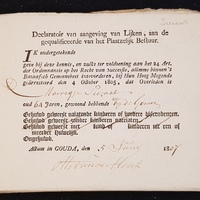 Declaratoir van aangeving van Lijken, aan de
gequalificeerde van het Plaatzelijk Bestuur.
IK ondergeteekende
geve bij deze kennis, en zulks ter voldoening aan het 14 Art.
der Ordonnantie op het Recht van successie, alömme binnen 't
Bataafsch Gemeenebest intevorderen, bij Hun Hoog Mogende
gearresteerd den 4 October 1805, dat Overleeden is
oud 64 Jaren, gewoond hebbende
Gehuwd geweest nalatende kinderen of kindere afstammelingen.
Gehuwd geweest zonder kinderen natelaten.
Gehuwd geweest met kind of kinderen uit een of
meerder Huwelijk.
Ongehuwd.
Aktum in GOUDA, den 5 1807